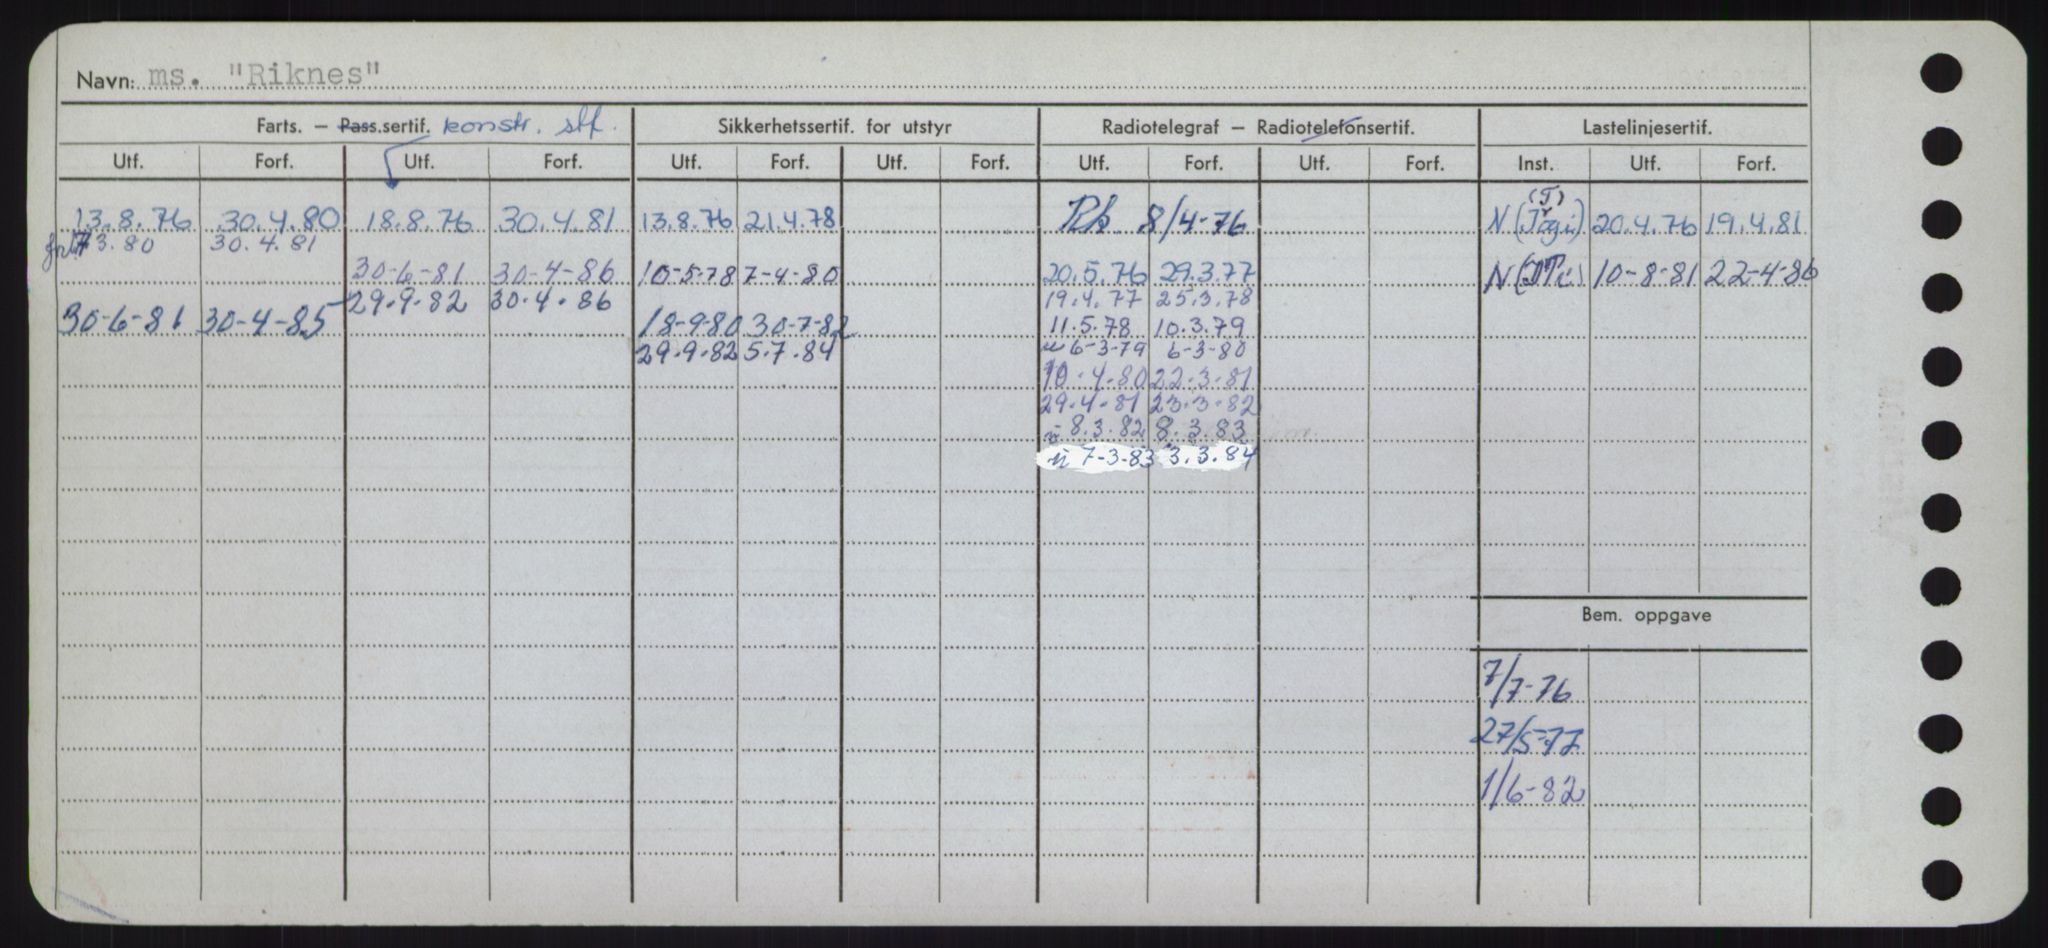 Navn: ms. "Riknes"
Farts. — Pass.sertif. konstr. stf. Sikkerhetssertif. for utstyr Radiotelegraf — Radiotelefonsertif. Lastelinjesertif.
Utf. Forf. Utf. Forf. Utf. Forf. Utf. Forf. Utf. Forf. Utf. Forf. Inst. Utf. Forf.
(T)
13.8.76 30.4.80 18.8.76 30.4.81 13.8.76 21.4.78 Rk 8/4-76 N 20.4.76 19.4.81
3.80 30.4.81
30-6-81 30-4-86 10-5-78 7-4-80 20.5.76 29.3.77 N 10-8-81 22-4-86
29.9.82 30.4.86 19.4.77 25.3.78
30-6-81 30-4-85 18-9-80 30-7-82 11.5.78 10.3.79
29.9.82 5.7.84 6-3-79 6-3-80
10.4.80 22.3.81
29.4.81 23.3.82
8.3.82 8.3.83
7-3-83 3.3.84
Bem. oppgave
7/7-76
27/5-77
1/6-82